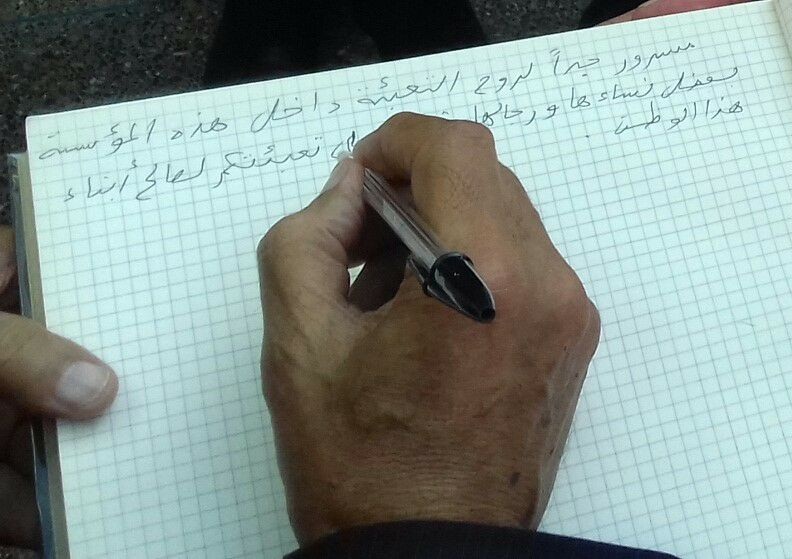 مسرور جداً لروح التعبئة داخل هذه المؤسسة
بفضل نساءها ورجالها تعبئتكم لصالح أبناء
هذا الوطن.